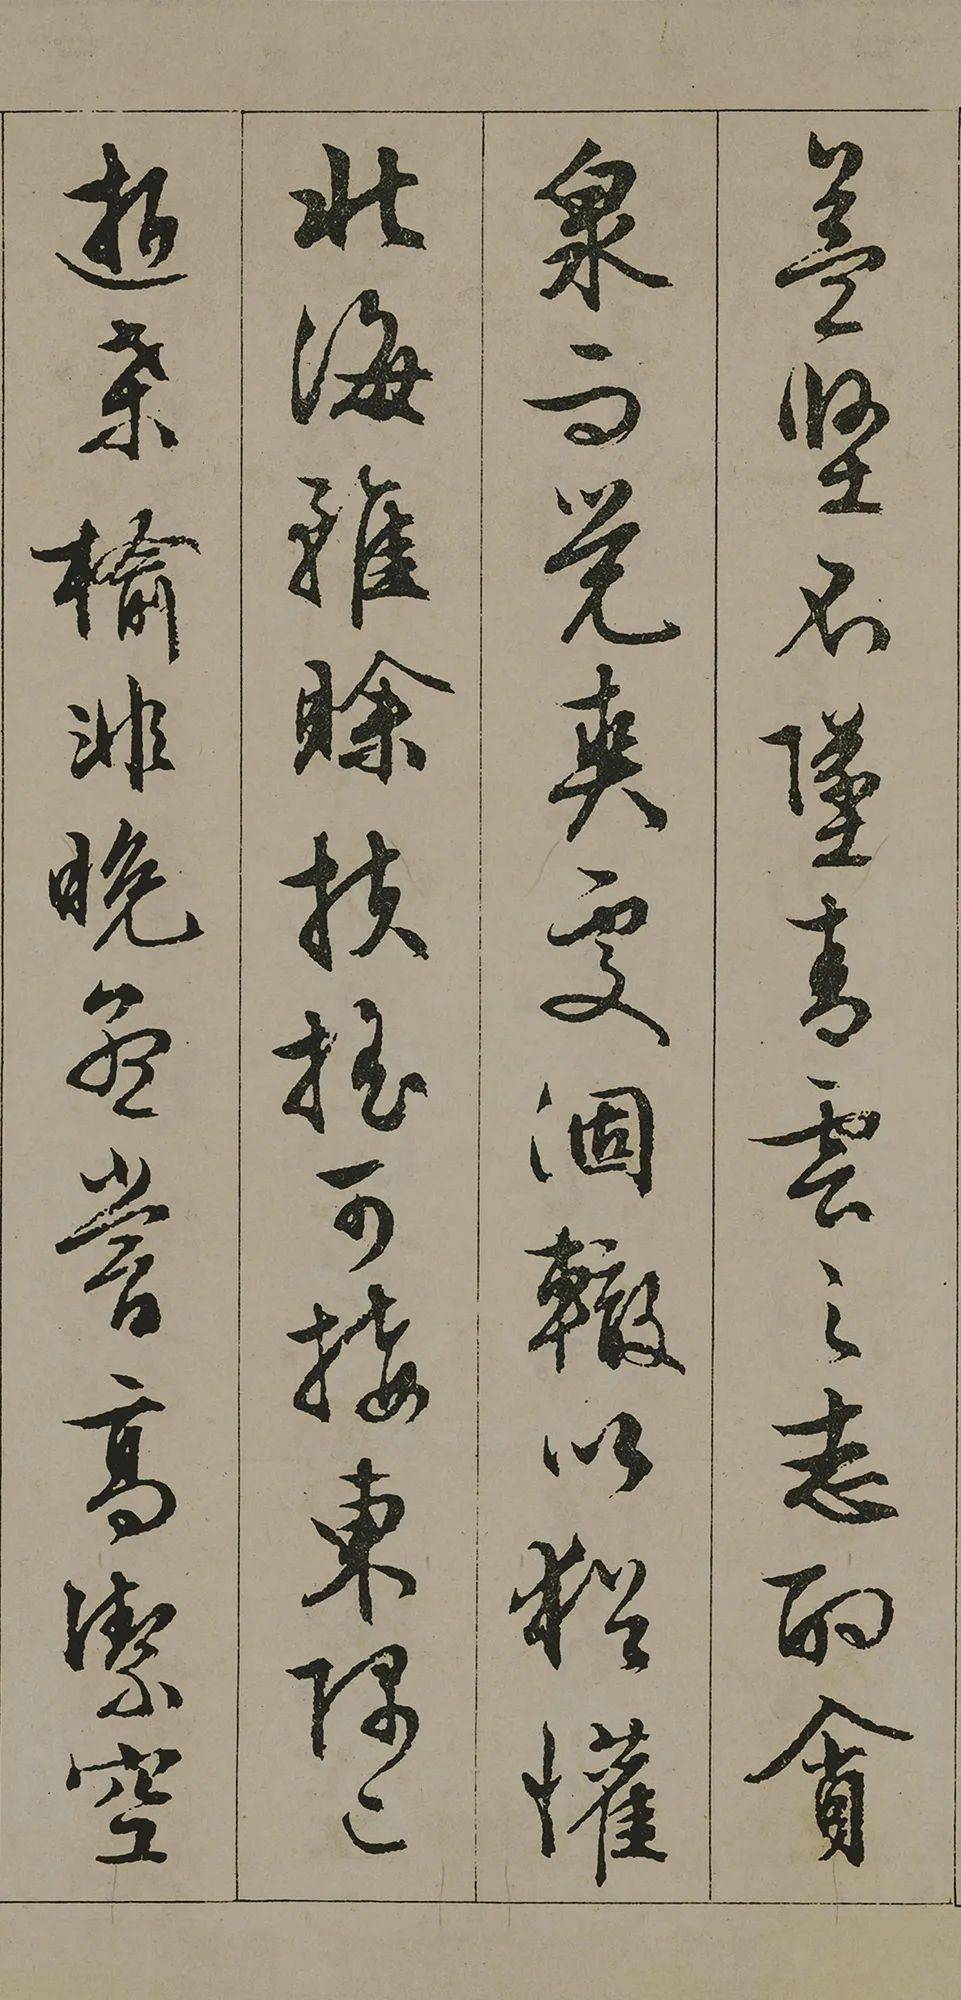 益堅不墜青雲之志酌貪
泉而覺爽處涸轍以猶懽
北海雖賒扶搖可接東隅已
逝桑榆非晚孟嘗高潔空